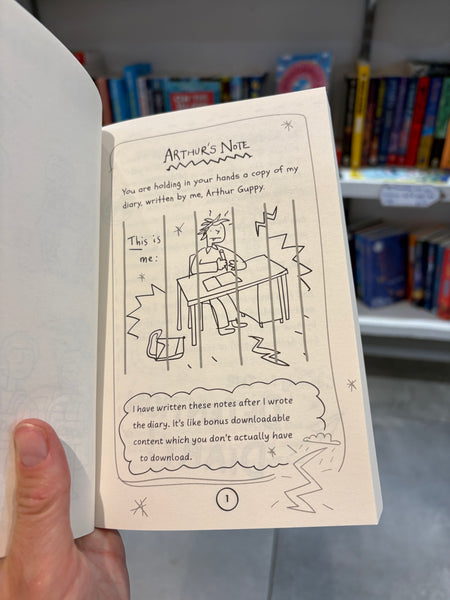 ARTHUR'S NOTE
You are holding in your hands a copy of my
diary, written by me, Arthur Guppy.
This is
me:
I have written these notes after I wrote
the diary. It's like bonus downloadable
content which you don't actually have
to download.
1